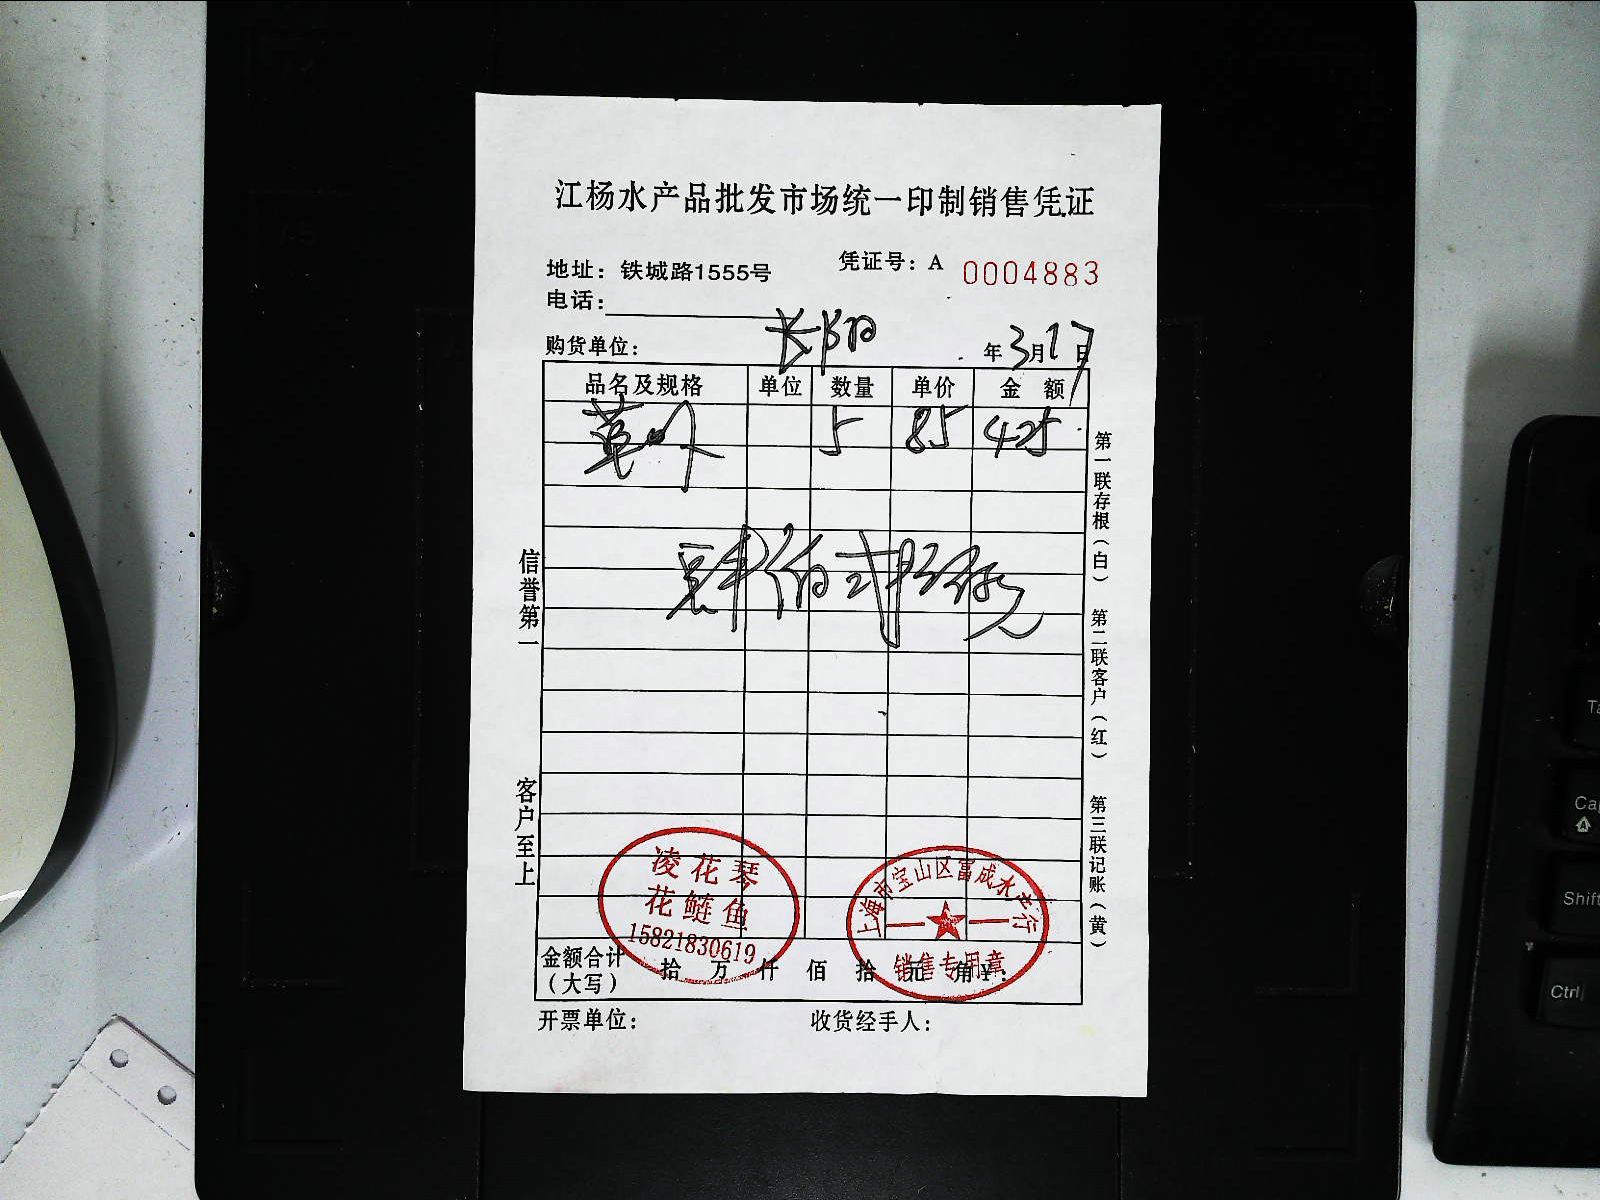 江杨水产品批发市场统一印制销售凭证
地址：铁城路1555号
凭证号：A 0004883
电话：
购货单位： 长阳
年3月17日
品名及规格 单位 数量 单价 金 额
5 85 425
肆佰贰拾伍元
信誉第一
客户至上
第一联存根（白） 第二联客户（红） 第三联记账（黄）
凌花琴
花鲢鱼
15821830619
上海市宝山区富成水产行
销售专用章
金额合计（大写） 拾 万 仟 佰 拾 元 角￥：
开票单位： 收货经手人：
Ta
Cap
Shift
Ctrl